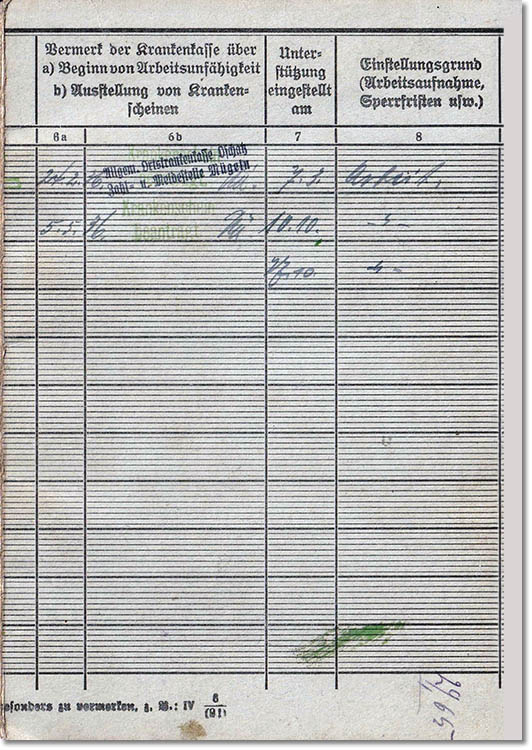 Vermerk der Krankenkasse über
a) Beginn von Arbeitsunfähigkeit
b) Ausstellung von Kranken-
scheinen
Unter-
stützung
eingestellt
am
Einstellungsgrund
(Arbeitsaufnahme,
Sperrfristen usw.)
6a 6b 7 8
Allgem. Ortskrankenkasse Oschatz
Zahl- u. Meldestelle Mügeln
24.2.36. 7.3. Arbeit.
Krankenschein
beantragt
5.5.36. 10.10. -"-
27.10. -"-
besonders zu vermerken, z. B.: IV 6/(91)